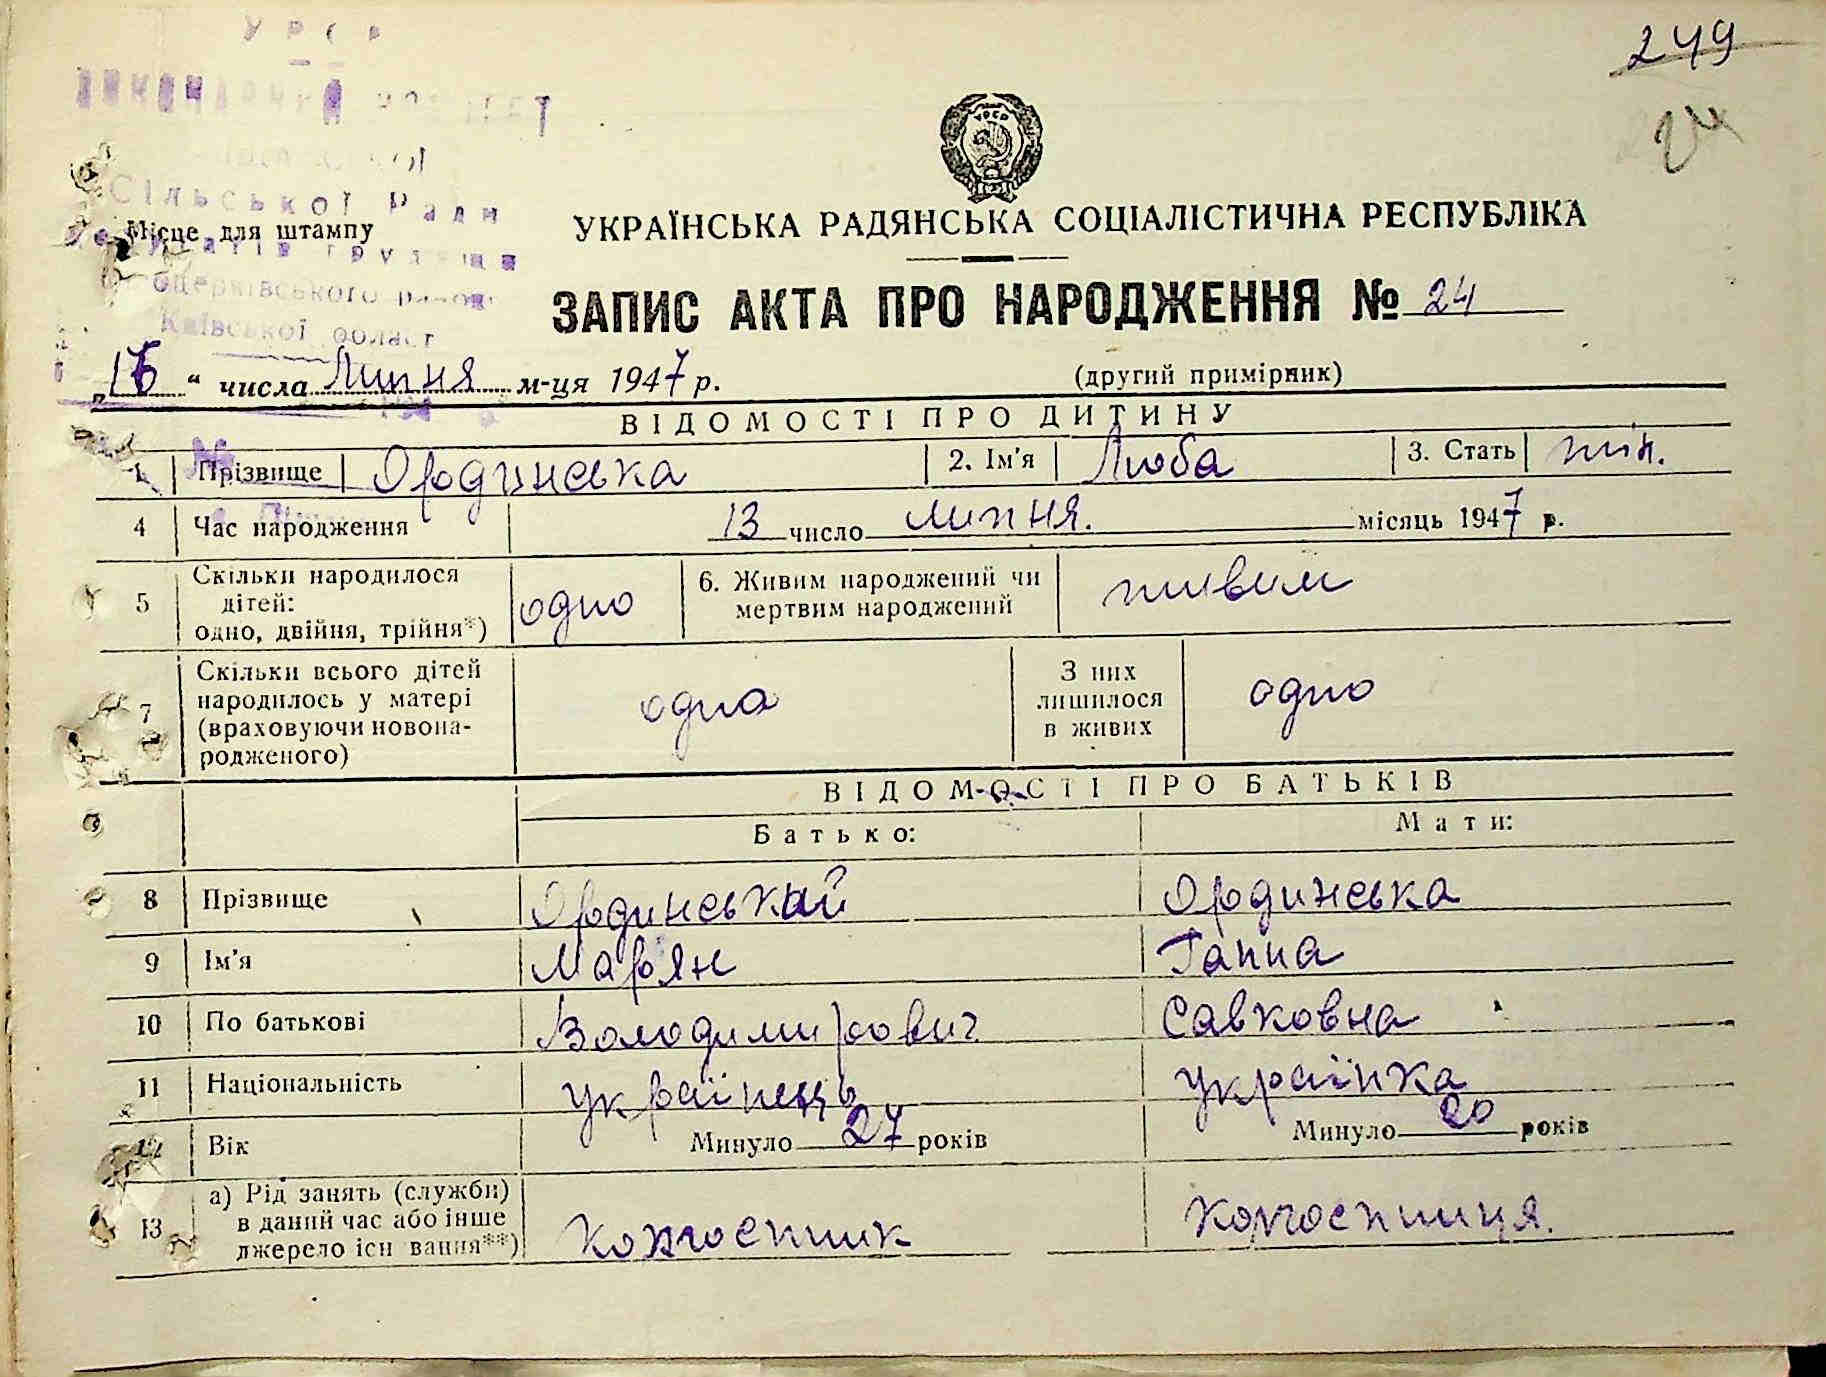 УРСР
249
24
Сільської Ради
Місце для штампу
Київської област
УКРАЇНСЬКА РАДЯНСЬКА СОЦІАЛІСТИЧНА РЕСПУБЛІКА
ЗАПИС АКТА ПРО НАРОДЖЕННЯ № 24
„16“ числа Липня м-ця 1947 р. (другий примірник)
ВІДОМОСТІ ПРО ДИТИНУ
1 Прізвище Ординська 2. Ім'я Люба 3. Стать жін.
4 Час народження 13 число липня. місяць 1947 р.
5 Скільки народилося дітей: одно, двійня, трійня*) одно 6. Живим народжений чи мертвим народжений живим
7 Скільки всього дітей народилось у матері (враховуючи новонародженого) одна З них лишилося в живих одно
ВІДОМОСТІ ПРО БАТЬКІВ
Батько: Мати:
8 Прізвище Ординський Ординська
9 Ім'я Мар'ян Ганна
10 По батькові Володимирович Савковна
11 Національність українець українка
12 Вік Минуло 27 років Минуло 20 років
13 а) Рід занять (служби) в даний час або інше джерело існ вання**) колгоспник колгоспниця.